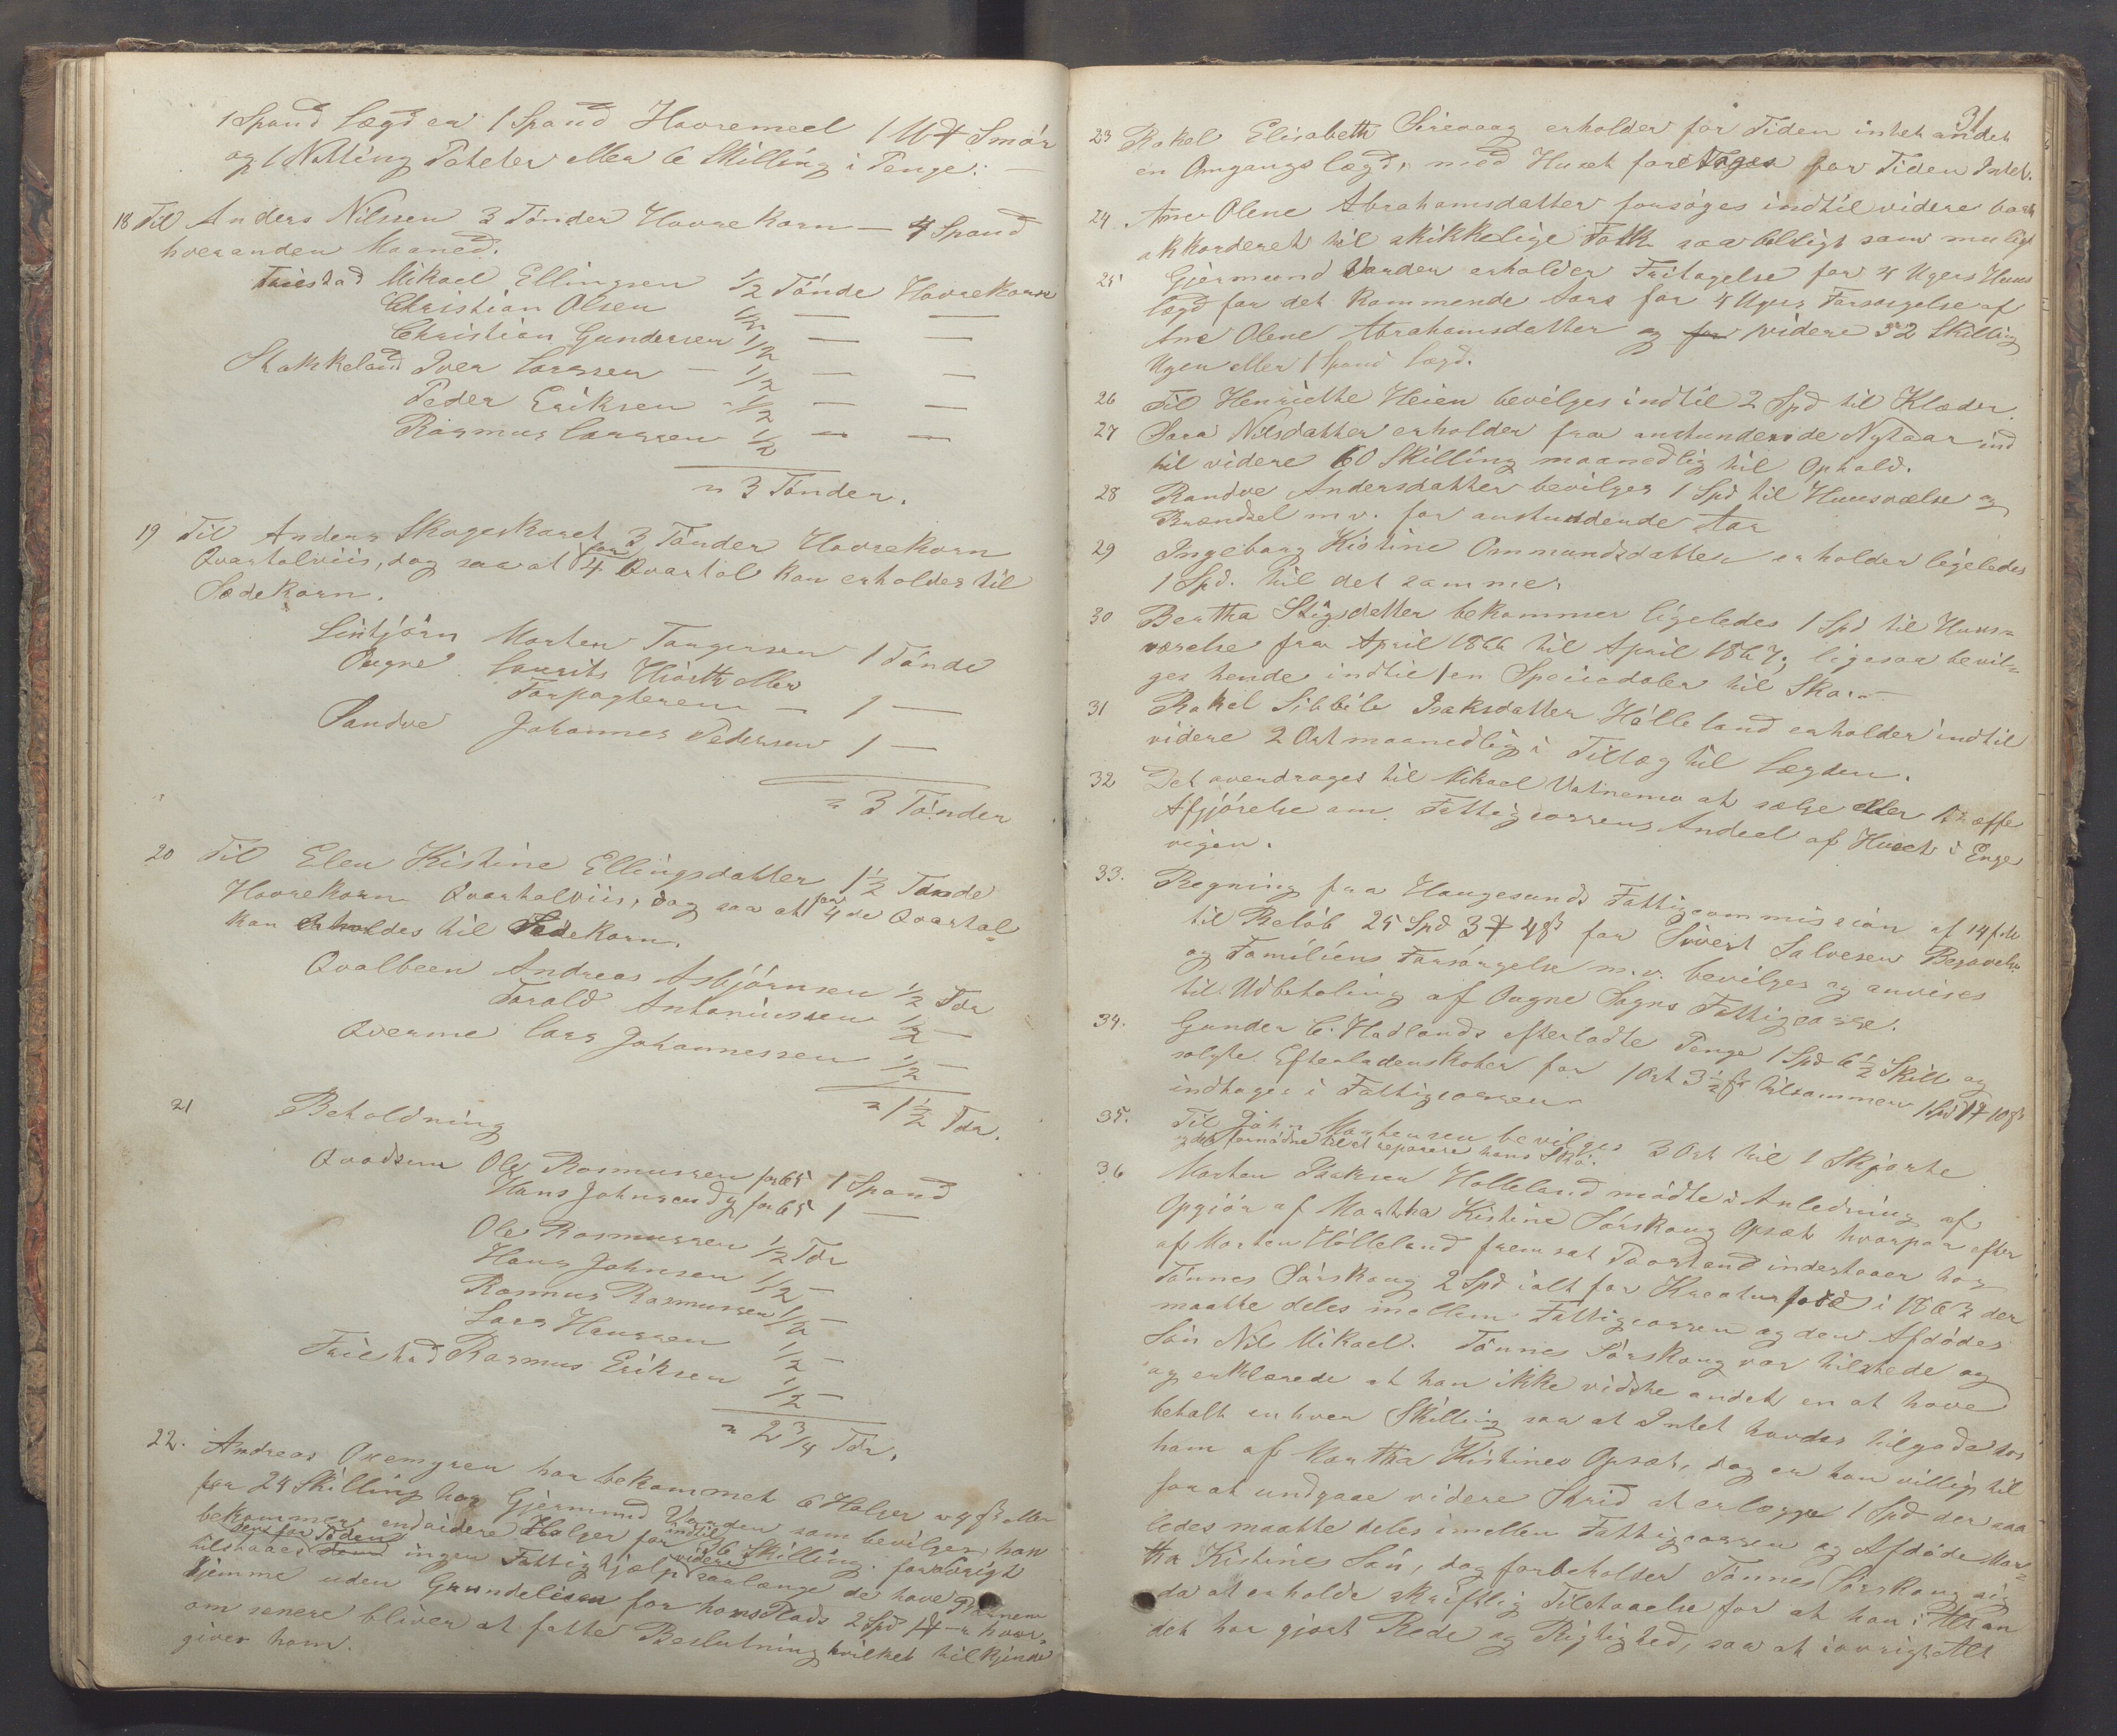 1 Spand Lægd er 1 Spand Havremeel 1 M# Smør
og 1 Notting Poteter eller 6 Skilling i Penge. —
18 Til Anders Nilssen 3 Tönder Havrekorn — 4 Spand
hveranden Maaned.
Friestad Mikael Ellingsen 1/2 Tönde Havrekorn
Christian Olsen 1/2 — —
Christian Gundersen 1/2 — —
Stokkeland Iver Larssen — 1/2 — —
Peder Eriksen - 1/2 — —
Rasmus Larssen 1/2 — —
= 3 Tönder.
19 Til Anders Skogeskaret 3 Tönder Havrekorn
Qvartalviis, dog saa at for 4 Qvartal kan erholdes til
Sædekorn.
Lintjörn Morten Torgersen 1 Tönde
Ougne Laurits Hiorth eller
Forpagteren — 1 —
Sandve Johannes Pedersen 1 —
= 3 Tönder
20 Til Elen Kistine Ellingsdatter 1 1/2 Tönde
Havrekorn Qvartalviis, dog saa at for 4de Qvartal
kan erholdes til Sædekorn.
Qvalbeen Andreas Asbjörnsen 1/2 Tdr
Torald Antoniussen 1/2 —
Qverme Lars Johannessen 1/2 —
= 1 1/2 Tdr.
21 Beholdning
Qvadsem Ole Rasmussen for 65 1 Spand
Hans Johnsen dy for 65 1 —
Ole Rasmussen 1/2 Tdr
Hans Johnsen 1/2 —
Rasmus Rasmussen 1/2 —
Lars Hanssen 1/2 —
Friestad Rasmus Eriksen 1/2 —
= 2 3/4 Tdr.
22. Andreas Oxemyren har bekommet 6 Halger a 4 ß eller
for 24 Skilling hos Gjermund Varden som bevilges, han
bekommer endvidere Halger for indtil 36 Skilling. forövrigt
tilstaaes for Tiden ingen Fattighjælp videre saalænge de have
hjemme uden Grundeleien for hans Plads 2 Spd 1 # - hvor-
om senere bliver at fatte Beslutning hvilket tilkjende
gives ham.
31
23 Rakel Elisabeth Sirevaag erholder for Tiden intet andet
en Omgangslægd, med Huset foretages for Tiden Intet.
24. Ane Olene Abrahamsdatter forsöges indtil videre bort
akkorderet til skikkelige Folk saa billigt som muligt
25 Gjermund Varden erholder Fritagelse for 4 Ugers Huus
lægd for det kommende Aars for 4 Ugers Forsörgelse af
Ane Olene Abrahamsdatter og for videre 32 Skilling
Ugen eller 1 Spand Lægd.
26 Til Henriette Heien bevilges indtil 2 Spd til Klæder.
27 Sara Nilsdatter erholder fra anstundende Nytaar ind
til videre 60 Skilling maanedlig til Ophold.
28 Randve Andersdatter bevilges 1 Spd til Huusværelse og
Brændsel m. v. for anstundende Aar
29 Ingeborg Kistine Ommundsdatter erholder ligeledes
1 Spd. til det samme.
30 Bertha Stigsdatter bekommer ligeledes 1 Spd til Huus-
værelse fra April 1866 til April 1867; ligesaa bevil-
ges hende indtil 1 en Speciedaler til Sko. —
31 Rakel Sibbile Isaksdatter Hölleland erholder indtil
videre 2 Ort maanedlig i Tillæg til Lægden.
32 Det overdrages til Mikael Vatnemo at sælge eller træffe
Afgjörelse om Fattigcassens Andeel af Huset i Enge
vigen.
33. Regning fra Haugesunds Fattigcommission af 14 f.M.
til Belöb 25 Spd 3 # 4 ß for Sivert Salvesen Begravelse
og Familiens Forsörgelse m. v. bevilges og anvises
til Udbetaling af Ougne Sogns Fattigcasse.
34. Gunder C. Hadlands efterladte Penge 1 Spd 6 1/2 Skill og
solgte Efterladenskaber for 1 Ort 3 1/2 ß tilsammen 1 Spd 1 # 10 ß
indtages i Fattigcassen.
35. Til John Mortensen bevilges 3 Ort til 1 Skjorte
og det fornödne til at reparere hans Sko.
36 Morten Isaksen Hölleland mödte i Anledning af
Opgjör af Martha Kistine Sörskoug Opsæt hvorpaa efter
af Morten Hölleland fremsat Paastand indestaaer hos
Tönnes Sörskoug 2 Spd ialt for Kreaturfoed i 1863 der
maatte deles mellem Fattigcassen og den Afdödes
Sön Nils Mikael. Tönnes Sörskoug var tilstede og
og erklærede at han ikke vidste andet en at have
betalt enhver Skilling saa at Intet havdes tilgode hos
ham af Martha Kistines Opsæt, dog er han villig til
for at undgaae videre Strid at erlægge 1 Spd der saa
ledes maatte deles imellem Fattigcassen og Afdöde Mar-
tha Kistines Sön, dog forbeholder Tönnes Sörskoug sig
da at erholde skriftlig Tilstaaelse for at han i Alt an
det har gjort Rede og Rigtighed, saa at iövrigt Alt